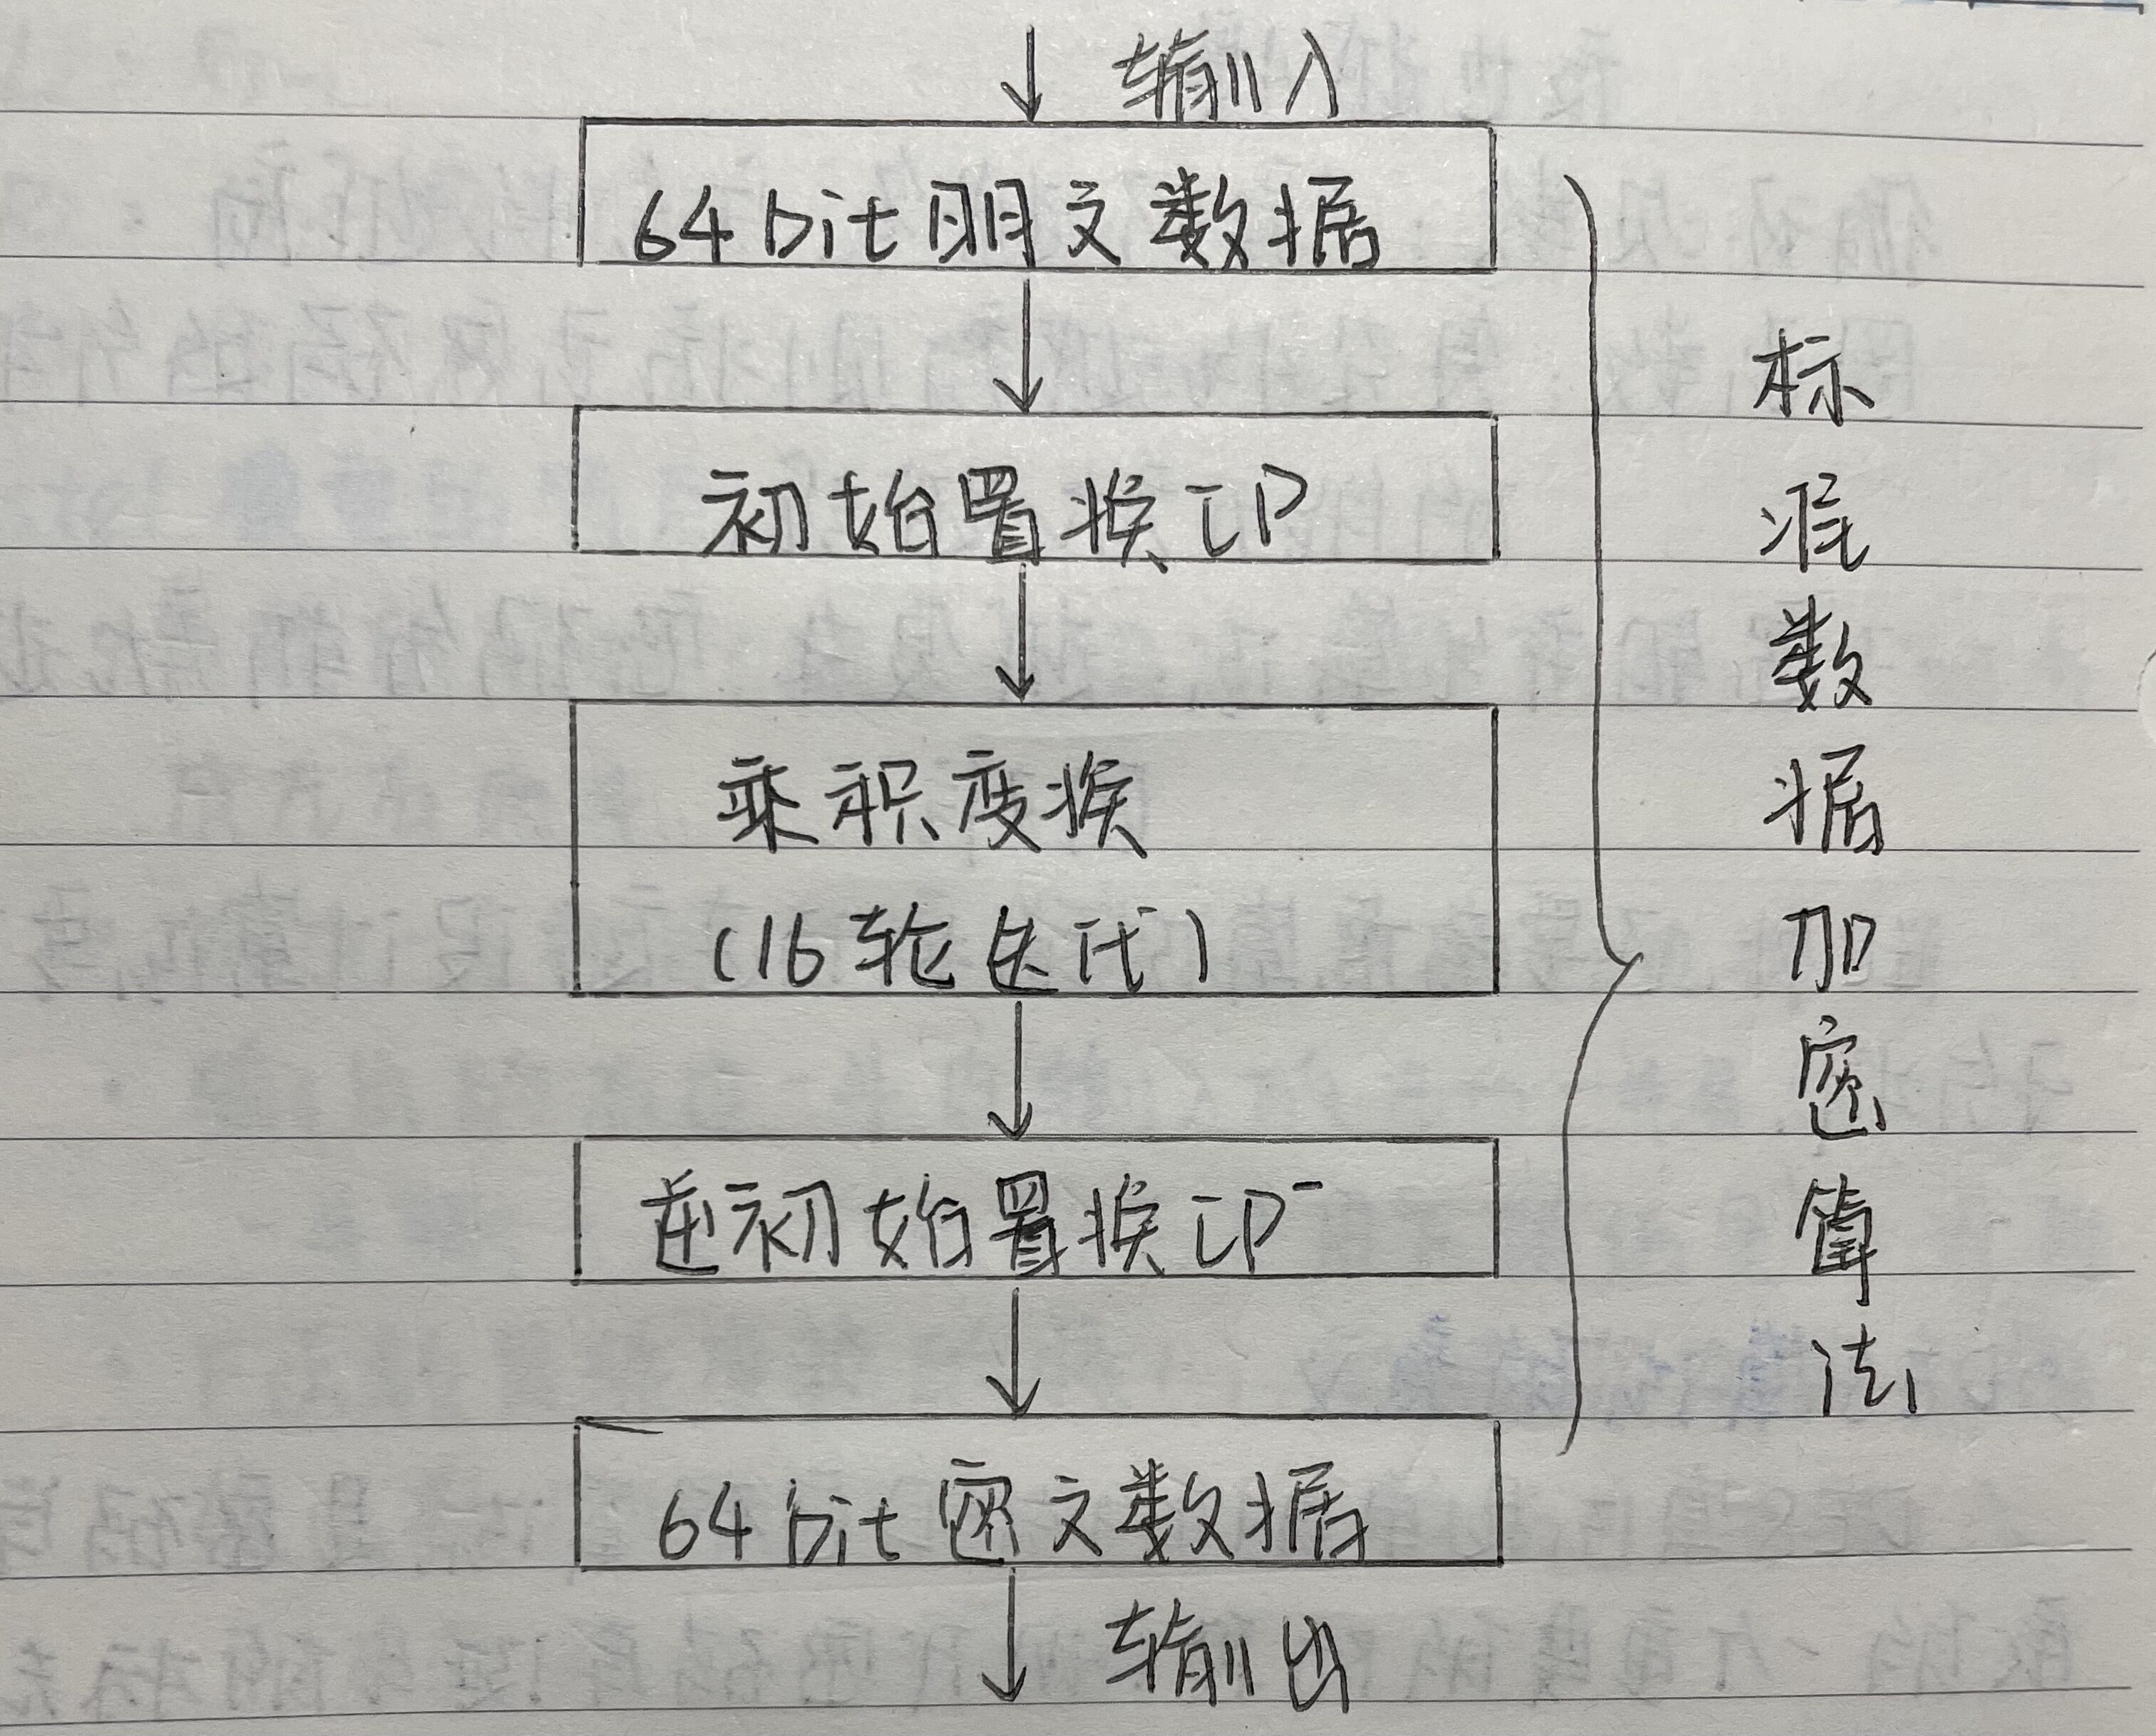 输入
64bit明文数据
初始置换IP
乘积变换
(16轮迭代)
逆初始置换IP⁻
64bit密文数据
输出
标准数据加密算法